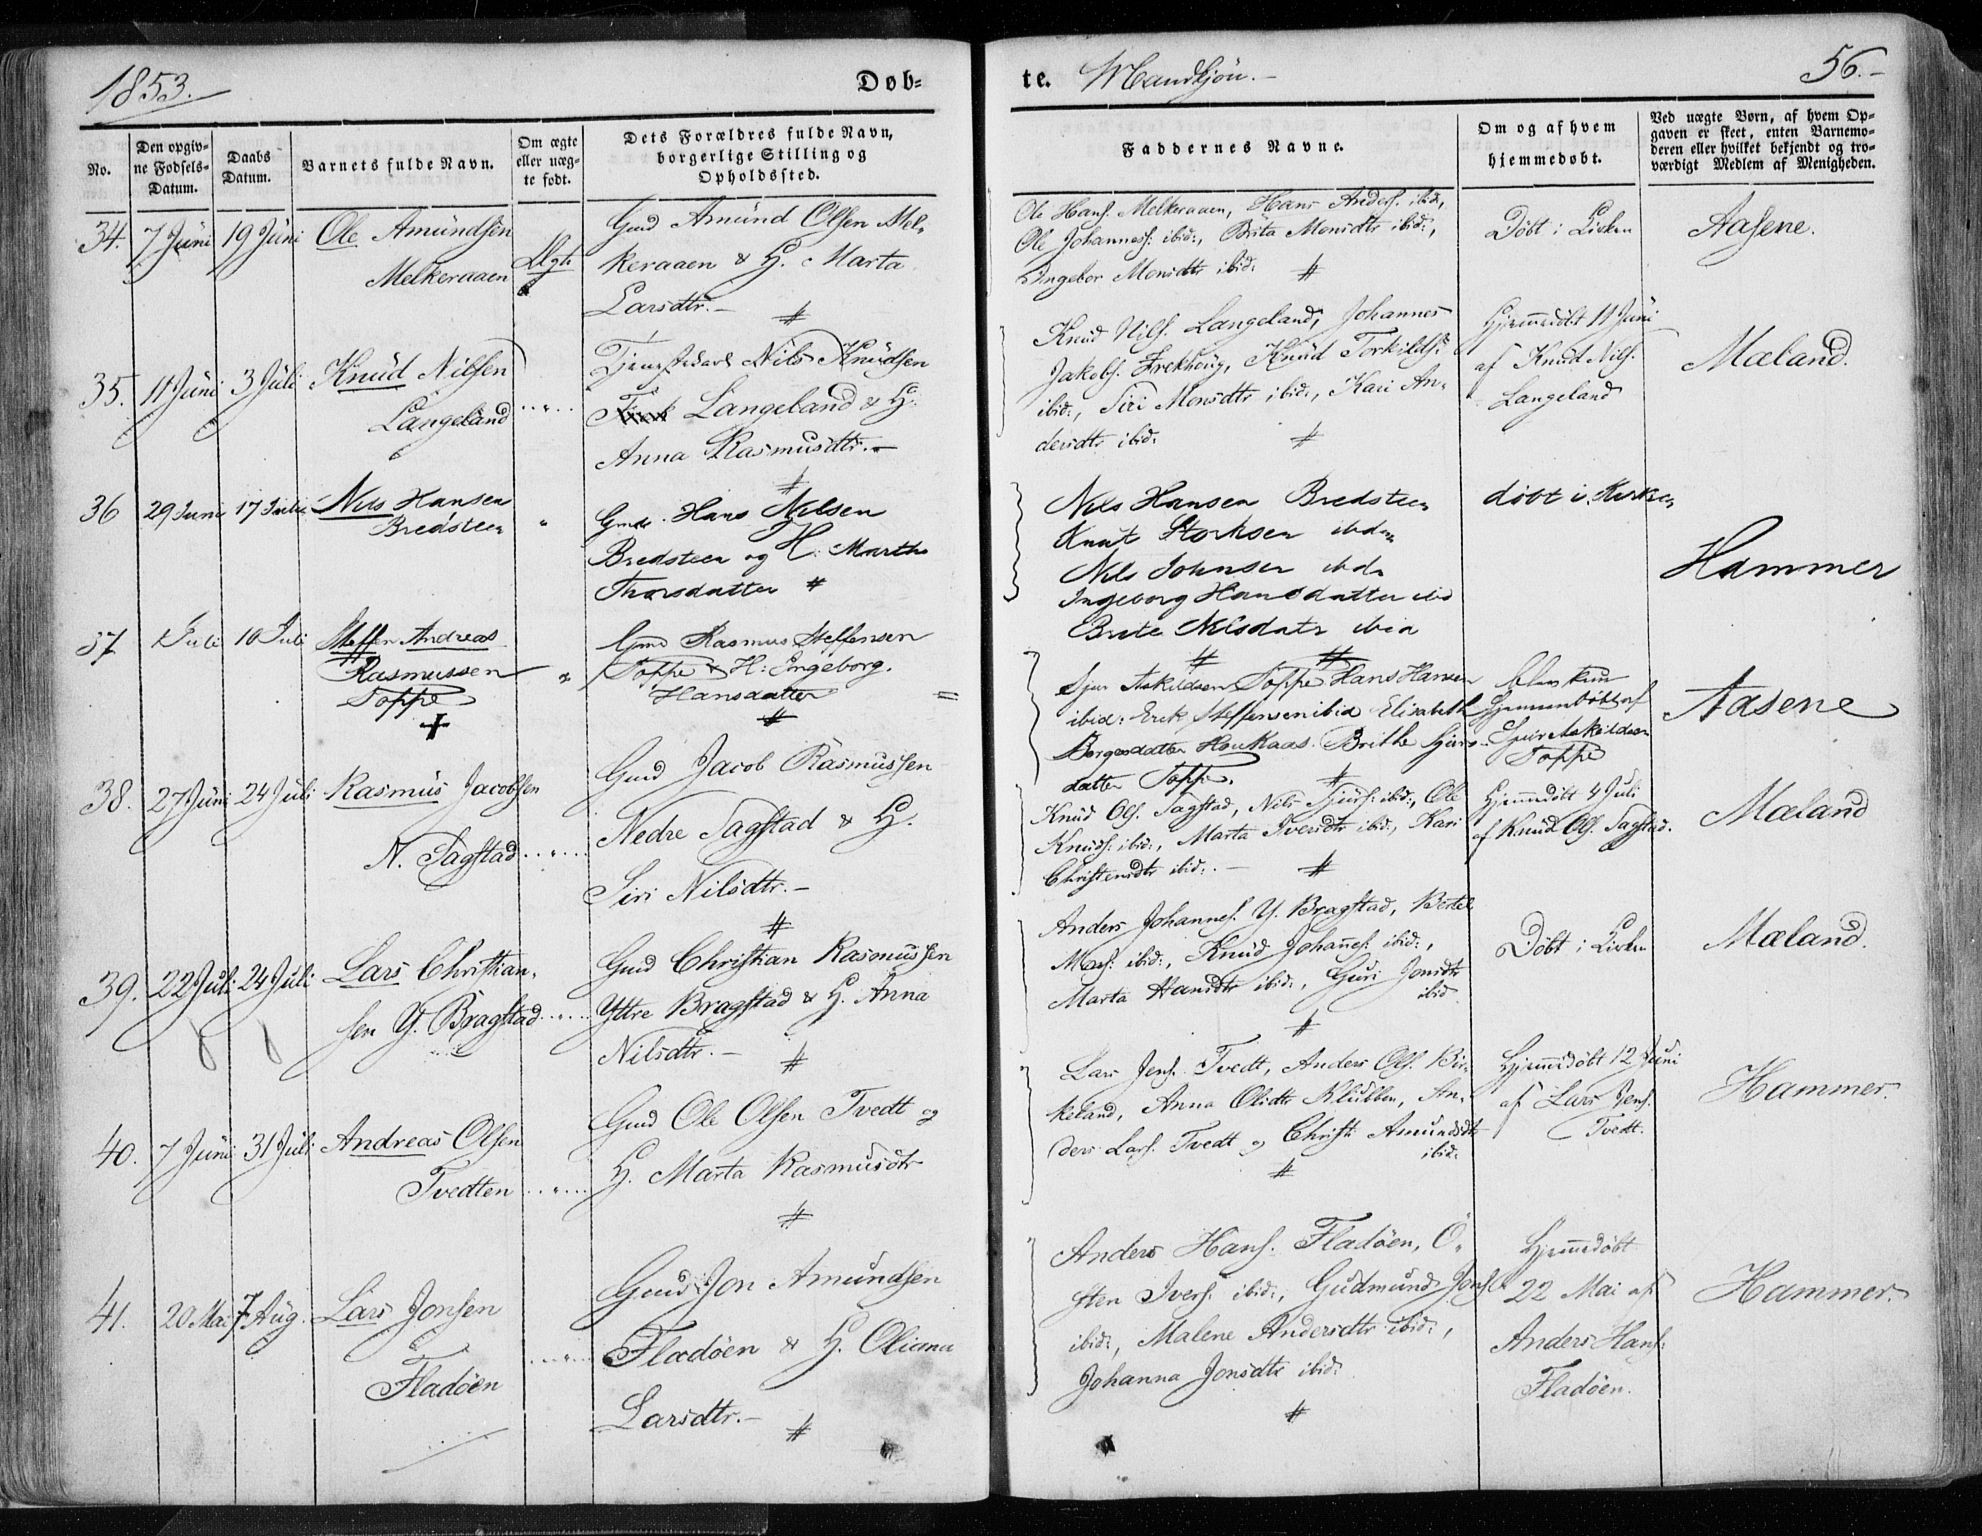 1853.
Døb=
te. Mandkjön.
56.
No.
Den opgiv=
ne Fødsels=
Datum.
Daabs
Datum.
Barnets fulde Navn.
Om ægte
eller uæg=
te født.
Dets Forældres fulde Navn,
borgerlige Stilling og
Opholdssted.
Faddernes Navne.
Om og af hvem
hjemmedøbt.
Ved uægte Børn, af hvem Op=
gaven er skeet, enten Barnemo=
deren eller hvilket bekjendt og tro=
værdigt Medlem af Menigheden.
34. 7 Juni 19 Juni Ole Amundsen
Melkeraaen
Ægt.
Gmd Amund Olsen Mel,
keraaen & H. Marta
Larsdtr. -
Ole Hans. Melkeraaen, Hans Anders. ibid.,
Ole Johannes. ibid:, Brita Monsdtr ibid:,
Ingebor Monsdtr ibid:
Døbt i Kirken
Aasene.
35. 11 Juni 3 Juli Knud Nilsen
Langeland
Tjenestekarl Nils Knudsen
Langeland & H.
Anna Rasmusdtr. -
Knud Nils. Langeland, Johannes
Jakobs. Frekhoug, Knud Torkilds.
ibid:, Siri Monsdtr ibid:, Kari An,
dersdtr ibid:
Hjemmedøbt 11 Juni
af Knud Nils.
Langeland
Mæland.
36 29 Juni 17 Juli Nils Hansen
Bredsteen
Gmd. Hans Nilsen
Bredsteen og H: Martha
Thorsdatter #
Nils Hansen Bredsteen
Knut Storksen ibden
Nils Johnsen ibde
Ingeborg Hansdatter ibid
Brite Nilsdatr ibid
døbt i Kirken
Hammer
37 1 Juli 10 Juli Steffen Andreas
Rasmussen
Toppe
Gmd Rasmus Steffensen
Toppe & H: Ingeborg.
Hansdatter
Sjur Askildsen Toppe Hans Hansen
ibid: Erik Steffensen ibid Elisabeth
Borgesdatter Haukaas. Brithe Sjurs
datter Toppe.
Blev kun
Hjemmedöbt af
Sjur Askildsen
Toppe
Aasene
38. 27 Juni 24 Juli Rasmus Jacobsen
N. Tagstad
Gmd Jacob Rasmussen
Nedre Tagstad & H.
Siri Nilsdtr. -
Knud Ols. Tagstad, Nils Sjurs. ibid:, Ole
Knuds. ibid:, Marta Iversdtr ibid:, Kari
Christensdtr ibid:. -
Hjemmedøbt 4 Juli
af Knud Ols. Tagstad.
Mæland
39. 22 Juli 24 Juli Lars Christian,
sen Y. Bragstad
Gmd Christian Rasmussen
Yttre Bragstad & H. Anna
Nilsdtr. -
Anders Johannes. Y. Bragstad, Bertel
Mons. ibid:, Knud Johannes. ibid:,
Marta Hansdtr ibid:, Guri Jonsdtr
ibid
Døbt i Kirken
Mæland.
40. 7 Juni 31 Juli Andreas Olsen
Tvedten
Gmd Ole Olsen Tvedt og
H. Marta Rasmusdtr
Lars Jens. Tvedt, Anders Ols. Bir,
keland, Anna Olsdtr Klubben, An,
ders Lars. Tvedt og Christi Amundsdtr
ibid:
Hjemmedøbt 12 Juni
af Lars Jens.
Tvedt.
Hammer.
41. 20 Mai 7 Aug. Lars Jonsen
Fladöen
Gmd Jon Amundsen
Fladöen & H. Oliana
Larsdtr. -
Anders Hans. Fladöen, Ö,
sten Ivers. ibid:, Gudmund Jons.
ibid:, Malene Andersdtr ibid:,
Johanna Jonsdtr ibid:
Hjemmedøbt
22 Mai af
Anders Hans.
Fladöen.
Hammer.